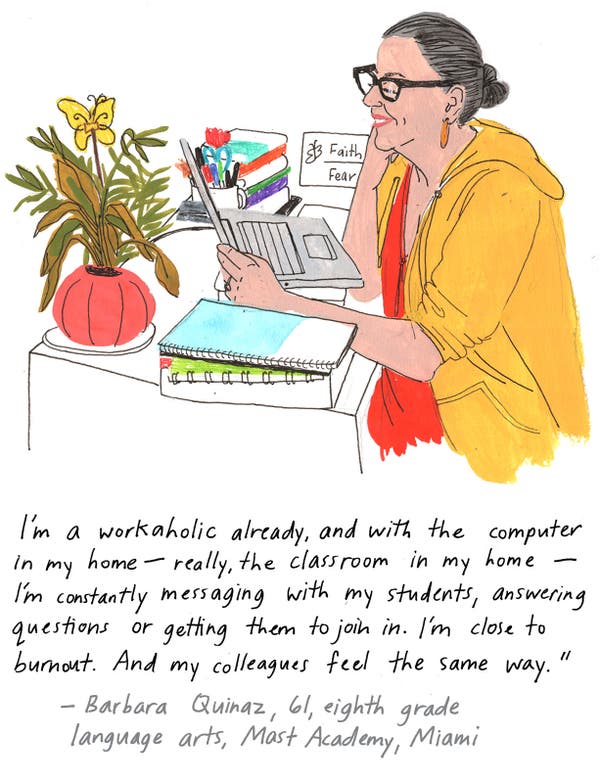 Faith
Fear
I'm a workaholic already, and with the computer
in my home — really, the classroom in my home —
I'm constantly messaging with my students, answering
questions or getting them to join in. I'm close to
burnout. And my colleagues feel the same way."
— Barbara Quinaz, 61, eighth grade
language arts, Mast Academy, Miami